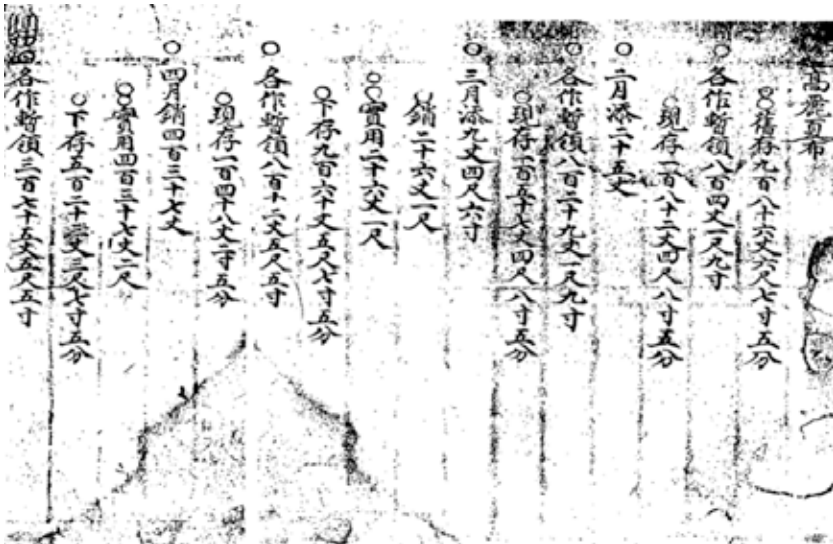 高麗夏布
○舊存九百八十六丈六尺七寸五分
○各作暫領八百四丈一尺九寸
○現存一百八十二丈四尺八寸五分
○二月添二十五丈
○各作暫領八百二十九丈一尺九寸
○現存一百五十七丈四尺八寸五分
○三月添九丈四尺六寸
銷二十六丈一尺
○實用二十六丈一尺
○下存九百六十丈五尺七寸五分
○各作暫領八百十二丈五尺五寸
○現存一百四十八丈二寸五分
○四月銷四百三十七丈
○實用四百三十七丈二尺
○下存五百二十三丈三尺七寸五分
各作暫領三百七十五丈五尺五寸